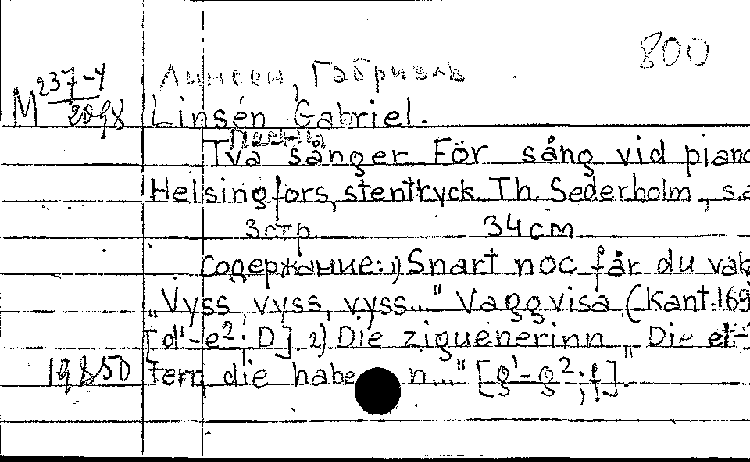 800
Линсен, Габриэль
М 237-4/2098 Linsén Gabriel.
Песня
Två sånger För sång vid piano
Helsingfors, stentryck Th. Sederholm, s.a
3 стр. 34 cm
Содержание: 1) Snart noc får du vak
„Vyss vyss, vyss..." Vaggvisa (Kant.169
[d'-e²; D] 2) Die ziguenerinn „Die el-
19850 tern die habe n..." [g'-g²; f]